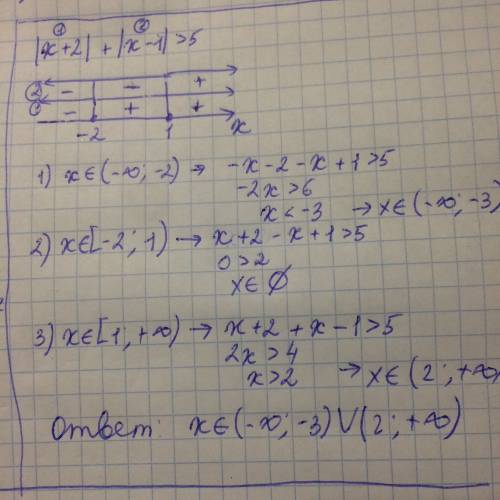 ① ②
|x+2| + |x-1| >5
② - - +
① - + +
-2 1 x
1) x∈(-∞; -2) → -x-2-x+1>5
-2x>6
x<-3 → x∈(-∞; -3)
2) x∈[-2; 1) → x+2-x+1>5
0>2
x∈ ∅
3) x∈[1; +∞) → x+2+x-1>5
2x>4
x>2 → x∈(2; +∞)
Ответ: x∈(-∞; -3)∪(2; +∞)